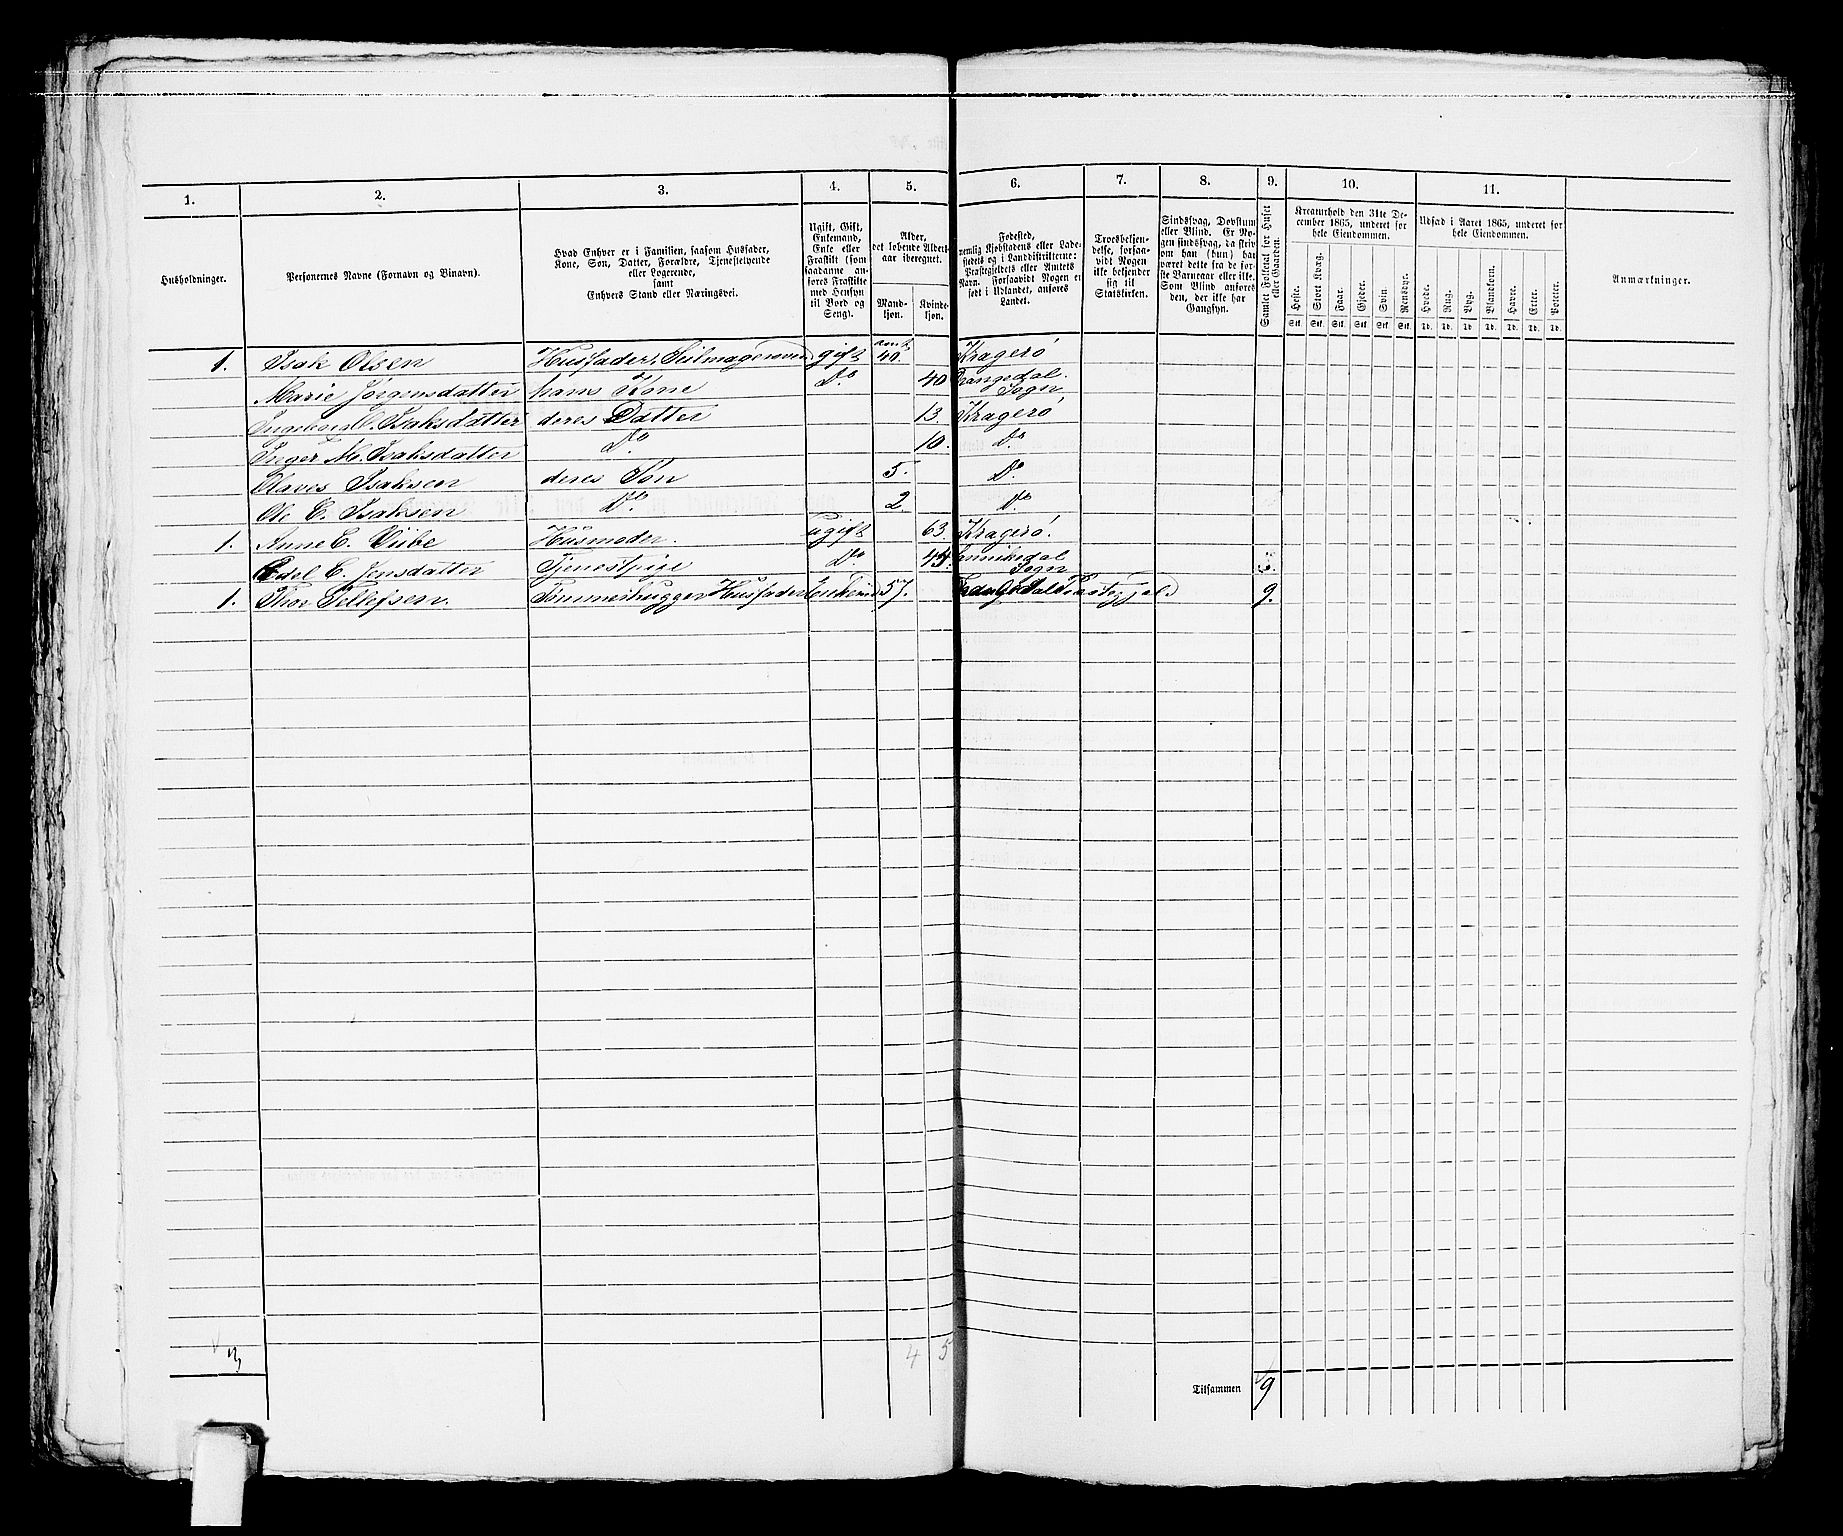 1. 2. 3. 4. 5. 6. 7. 8. 9. 10. 11.
Husholdninger.
Personernes Navne (Fornavn og Binavn).
Hvad Enhver er i Familien, saasom Husfader,
Kone, Søn, Datter, Forældre, Tjenestetyende
eller Logerende,
samt
Enhvers Stand eller Næringsvei.
Ugift, Gift,
Enkemand,
Enke eller
Fraskilt (som
saadanne an-
føres Fraskilte
med Hensyn
til Bord og
Seng).
Alder,
det løbende Alders-
aar iberegnet.
Mand-
kjøn.
Kvinde-
kjøn.
Fødested,
nemlig Kjøbstadens eller Lade-
stedets og i Landdistrikterne:
Præstegjeldets eller Amtets
Navn. Forsaavidt Nogen er
født i Udlandet, anføres
Landet.
Troesbekjen-
delse, forsaa-
vidt Nogen
ikke bekjender
sig til
Statskirken.
Sindssvag, Døvstum
eller Blind. Er No-
gen sindssvag, da skriv
om han (hun) har
været dette fra de før-
ste Barneaar eller ikke.
Som Blind anføres
den, der ikke har
Gangsyn.
Samlet Folketal for Huset
eller Gaarden.
Kreaturhold den 31te De-
cember 1865, underet for
hele Eiendommen.
Heste. Stort Kvæg. Faar. Gjeder. Svin. Rensdyr.
Stk. Stk. Stk. Stk. Stk. Stk.
Udsæd i Aaret 1865, underet for
hele Eiendommen.
Hvede. Rug. Byg. Blandkorn. Havre. Erter. Poteter.
Td. Td. Td. Td. Td. Td. Td.
Anmærkninger.
1. Isak Olsen Husfader, Seilmagersvend gift 40. Kragerö
Marie Jörgensdatter hans Kone Do 40 Drangedal Sogn
Isaksdatter deres Datter 13. Kragerö
Inger M. Isaksdatter Do. 10. Do.
Olaves Isaksen deres Søn 5. Do.
Ole C. Isaksen Do. 2 Do.
1. Anne C. Viibe Husmoder. ugift 63. Kragerö.
Edel C. Jensdatter Tjenestpige Do. 45. Sannikedal Sogn
1. Thor Tellefsen. Tømmerhugger Husfader Enkemd 57. 9.
3 4 5
Tilsammen 9